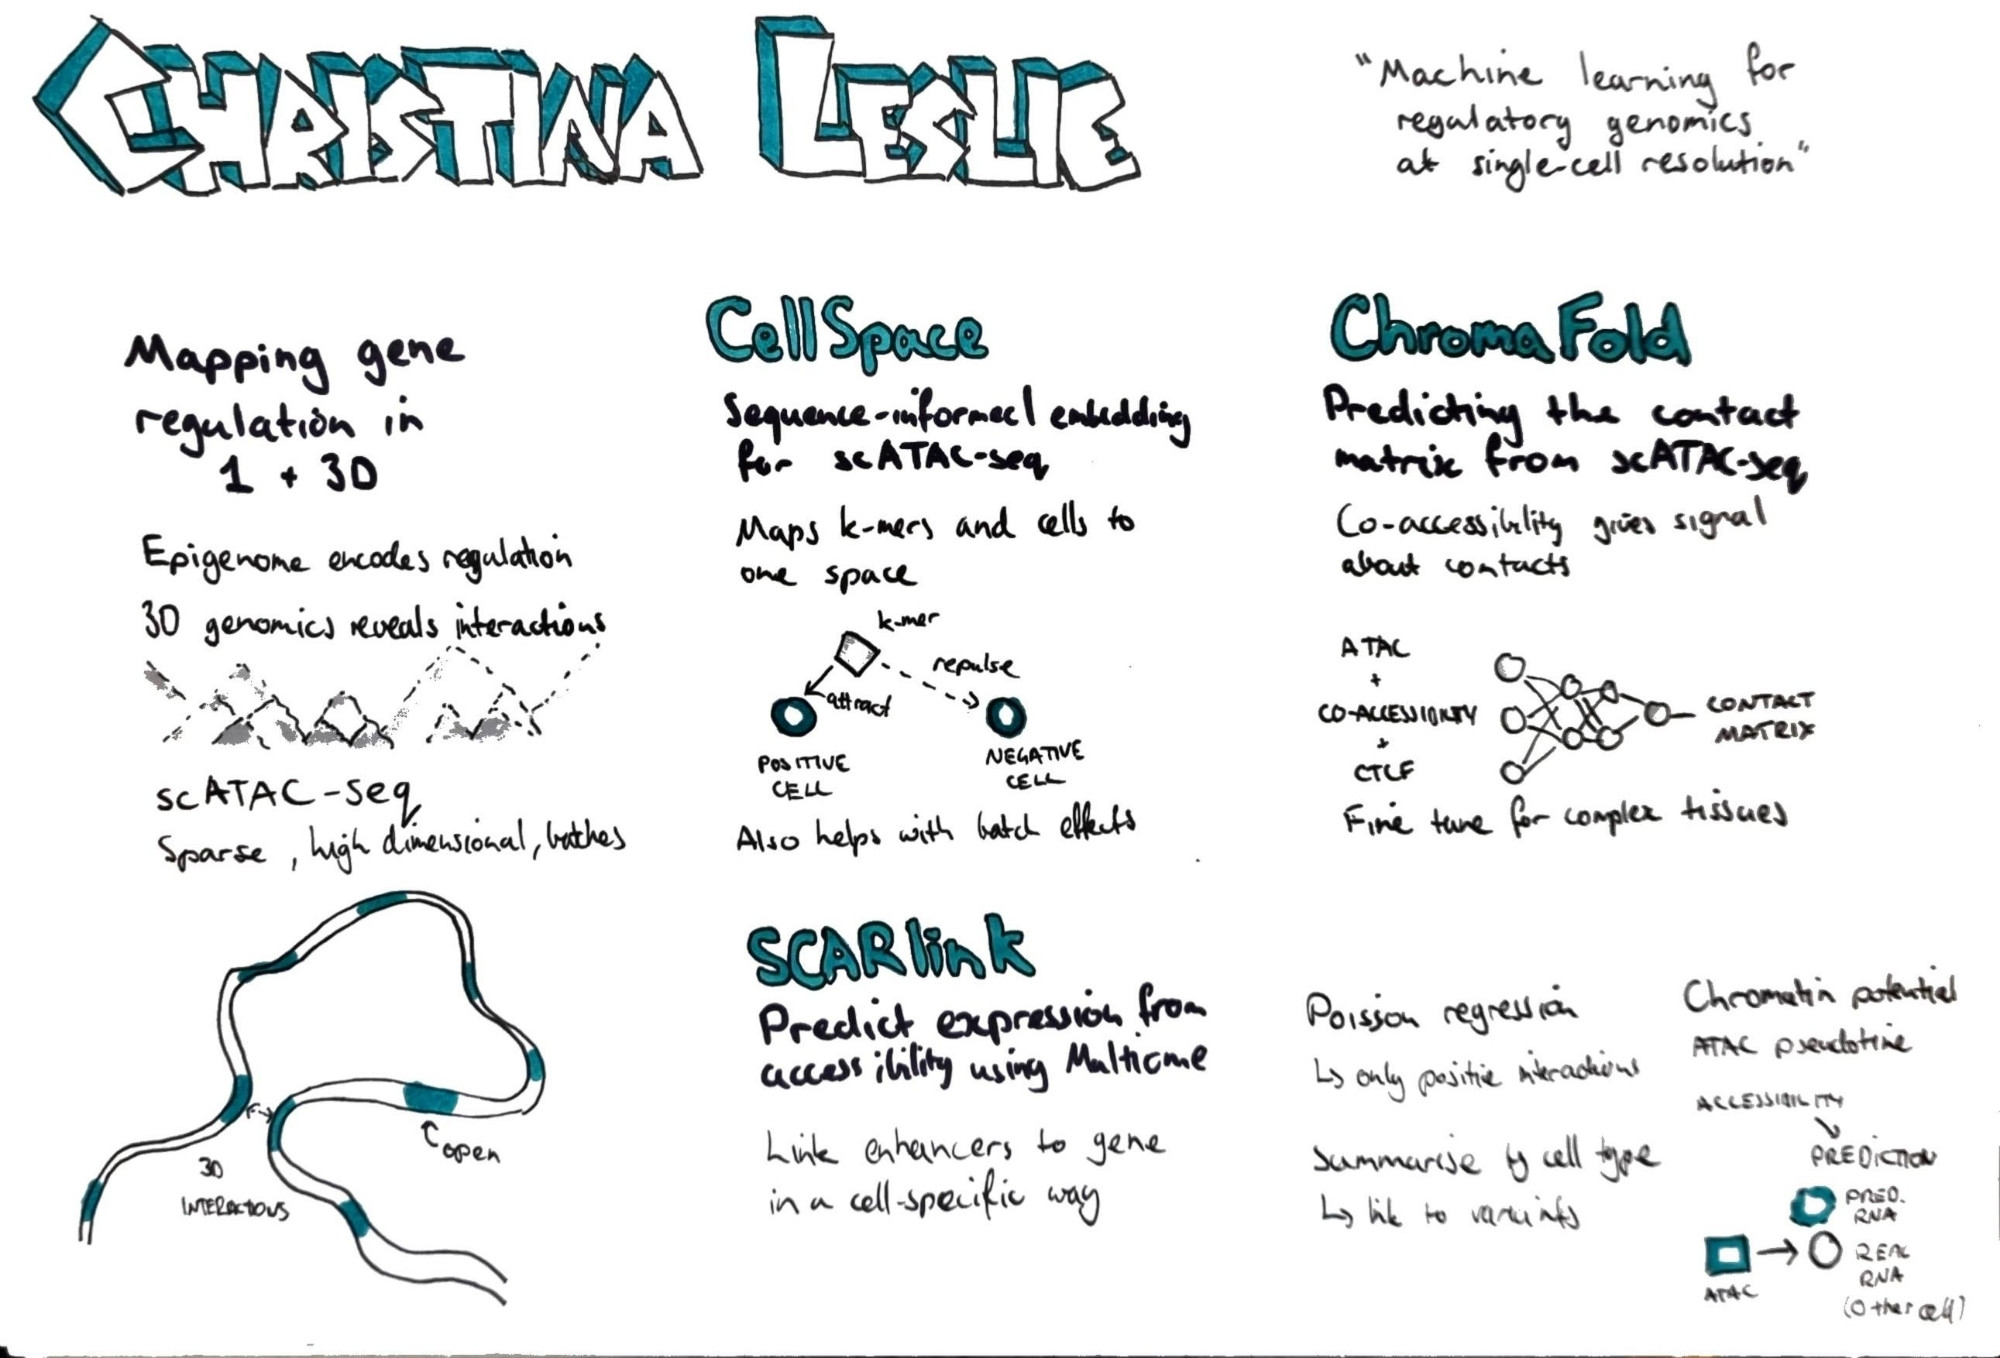 CHRISTINA LESLIE
"Machine learning for
regulatory genomics
at single-cell resolution"
Mapping gene
regulation in
1 + 3D
Epigenome encodes regulation
3D genomics reveals interactions
scATAC-seq
Sparse, high dimensional, batches
3D
INTERACTIONS
open
CellSpace
Sequence-informed embedding
for scATAC-seq
Maps k-mers and cells to
one space
k-mer
repulse
attract
POSITIVE
CELL
NEGATIVE
CELL
Also helps with batch effects
ChromaFold
Predicting the contact
matrix from scATAC-seq
Co-accessibility gives signal
about contacts
ATAC
+
CO-ACCESSIBILITY
+
CTCF
CONTACT
MATRIX
Fine tune for complex tissues
SCARlink
Predict expression from
accessibility using Multiome
Link enhancers to gene
in a cell-specific way
Poisson regression
↳ only positive interactions
Summarise by cell type
↳ link to variants
Chromatin potential
ATAC pseudotime
ACCESSIBILITY
PREDICTION
PRED.
RNA
REAL
RNA
(Other cell)
ATAC